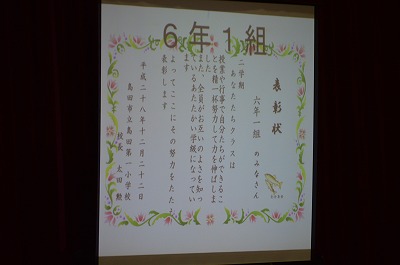 6年1組
表彰状
六年一組 のみなさん
二学期 あなたたちクラスは
授業や行事で自分たちができるこ
とを精一杯努力して力を伸ばしま
した
また、全員がお互いのよさを知っ
ているあたたかい学級になってい
ます
よってここにその努力をたたえ
表彰します
平成二十八年十二月二十二日
島田市立島田第一小学校
校長 太田 毅